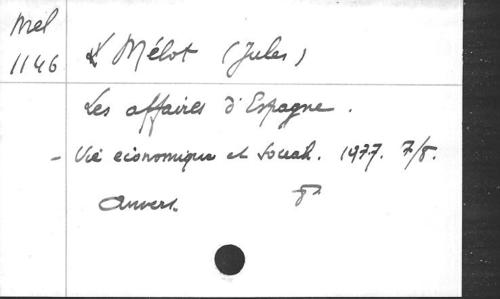 Mel
1146
Mélot (Jules)
Les affaires d'Espagne.
- Vie économique et Sociale. 1937. 7/8.
Anvers. 8º